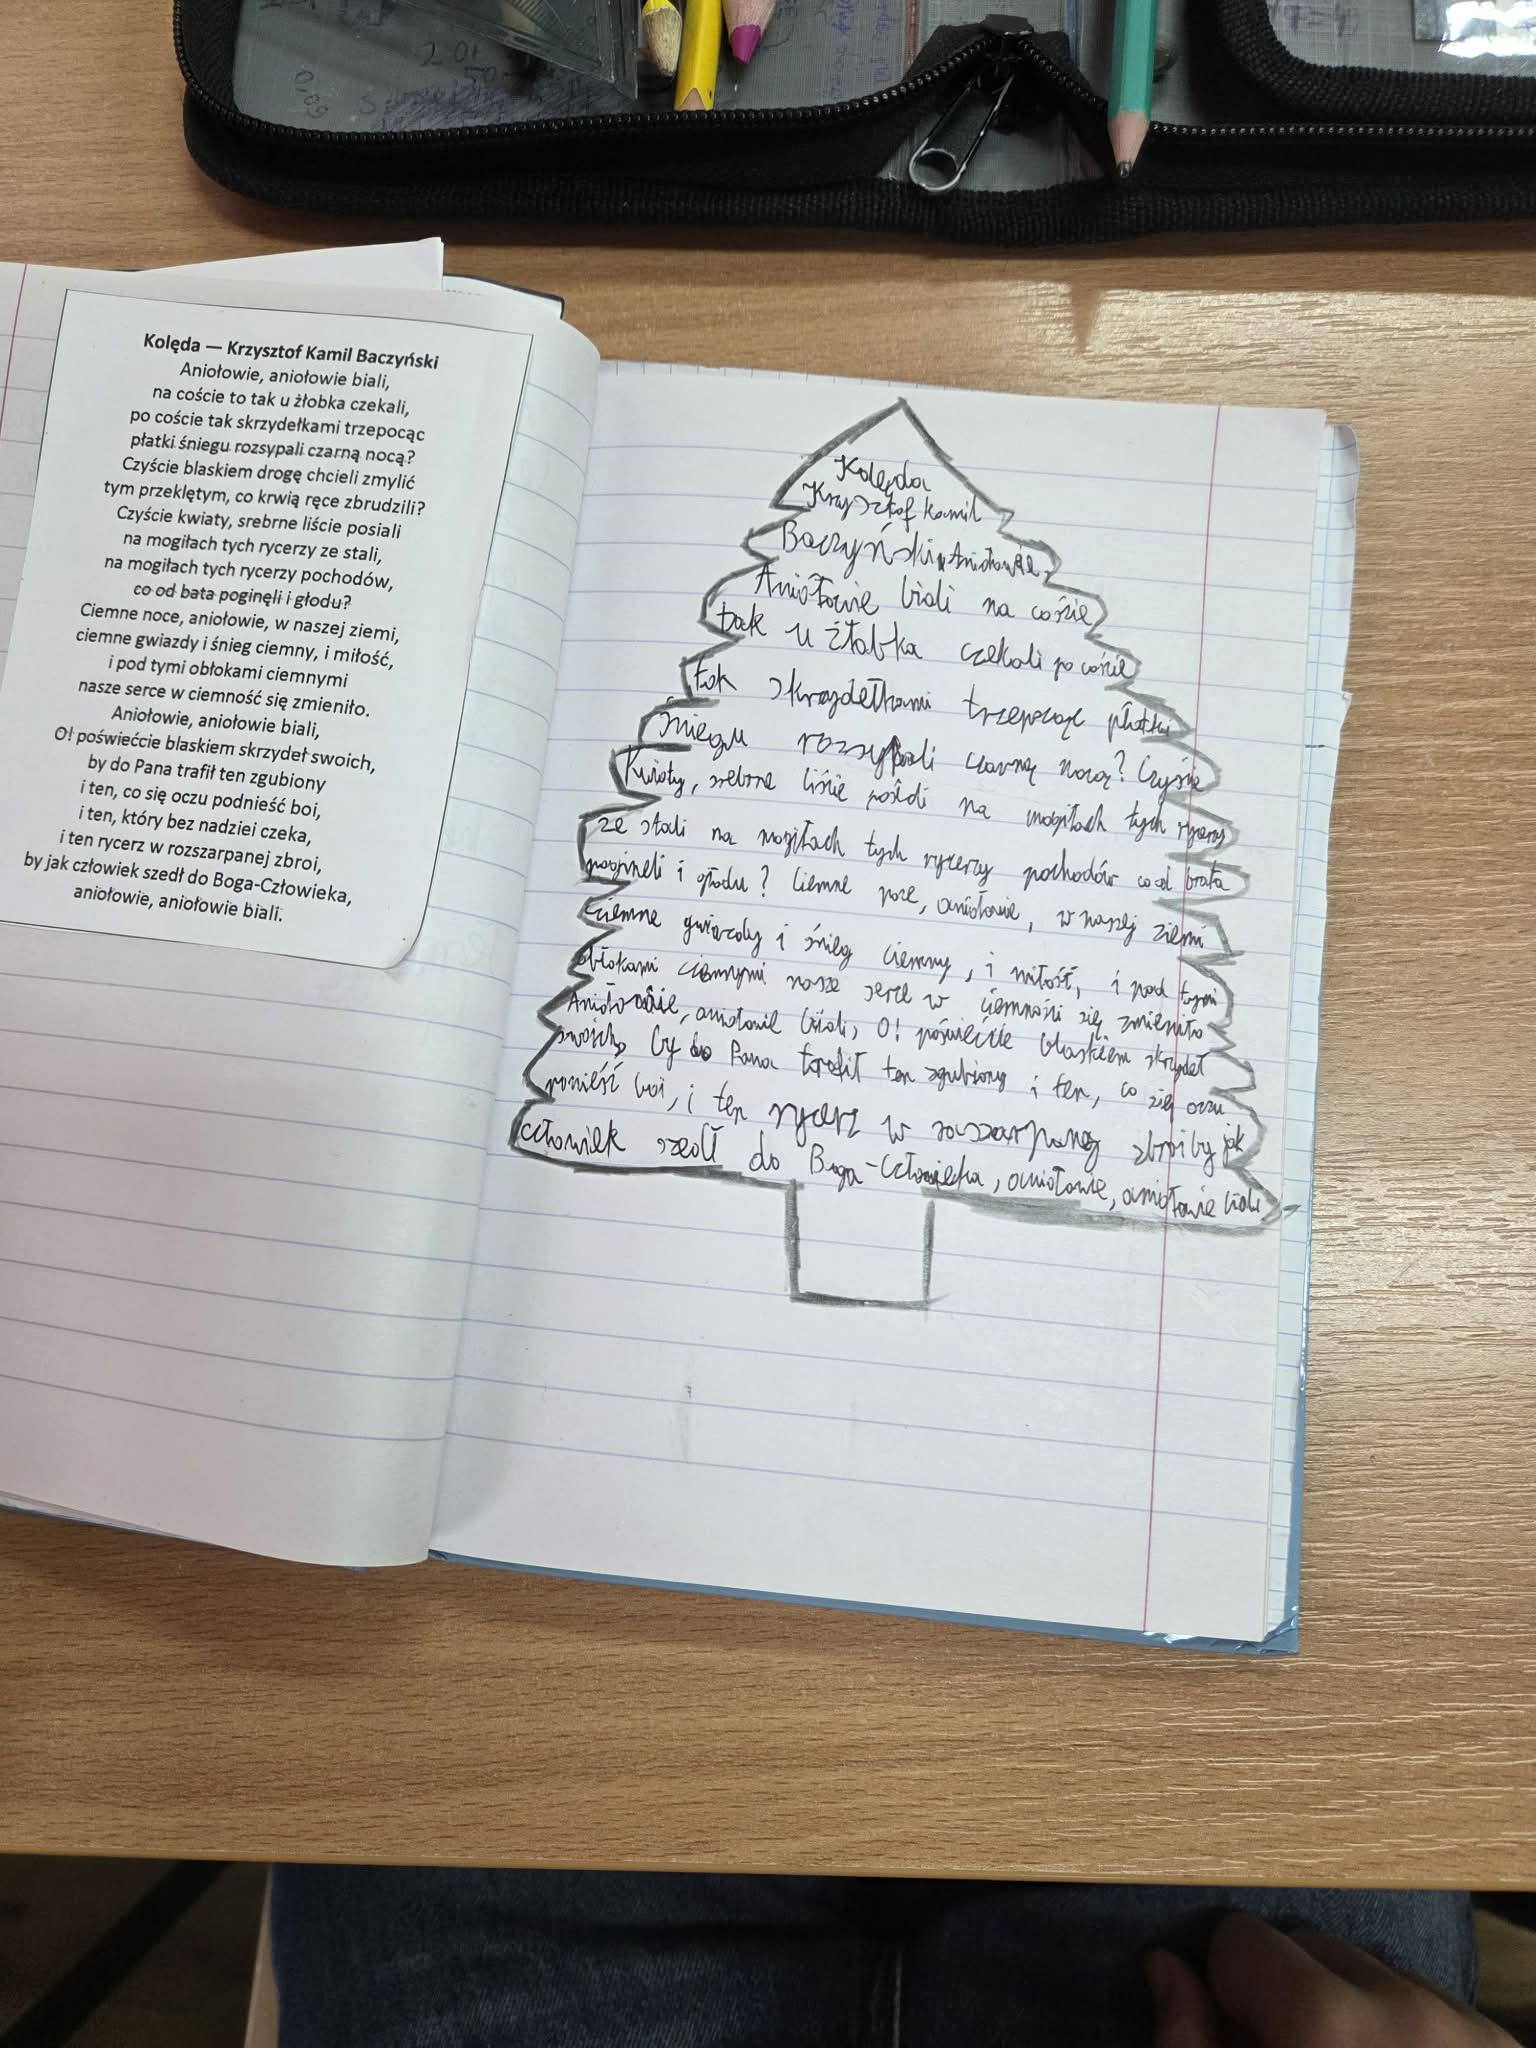 Kolęda — Krzysztof Kamil Baczyński
Aniołowie, aniołowie biali,
na coście to tak u żłobka czekali,
po coście tak skrzydełkami trzepocąc
płatki śniegu rozsypali czarną nocą?
Czyście blaskiem drogę chcieli zmylić
tym przeklętym, co krwią ręce zbrudzili?
Czyście kwiaty, srebrne liście posiali
na mogiłach tych rycerzy ze stali,
na mogiłach tych rycerzy pochodów,
co od bata poginęli i głodu?
Ciemne noce, aniołowie, w naszej ziemi,
ciemne gwiazdy i śnieg ciemny, i miłość,
i pod tymi obłokami ciemnymi
nasze serce w ciemność się zmieniło.
Aniołowie, aniołowie biali,
O! poświećcie blaskiem skrzydeł swoich,
by do Pana trafił ten zgubiony
i ten, co się oczu podnieść boi,
i ten, który bez nadziei czeka,
i ten rycerz w rozszarpanej zbroi,
by jak człowiek szedł do Boga-Człowieka,
aniołowie, aniołowie biali.
Kolęda
Krzysztof Kamil
Baczyński Aniołowie,
Aniołowie biali na coście
tak u żłobka czekali po coście
tak skrzydełkami trzepocąc płatki
śniegu rozsypali czarną nocą? Czyście
kwiaty, srebrne liście posiali na mogiłach tych rycerzy
ze stali na mogiłach tych rycerzy pochodów co od brata
pogineli i głodu? Ciemne noce, aniołowie, w naszej ziemi
ciemne gwiazdy i śnieg ciemny, i miłość, i pod tymi
obłokami ciemnymi nasze serce w ciemności się zmieniło
Aniołowie, aniołowie biali, O! poświećcie blaskiem skrzydeł
swoich, by do Pana trafił ten zgubiony i ten, co się oczu
ponieść boi, i ten rycerz w rozszarpanej zbroi by jak
człowiek szedł do Boga-Człowieka, aniołowie, aniołowie biali